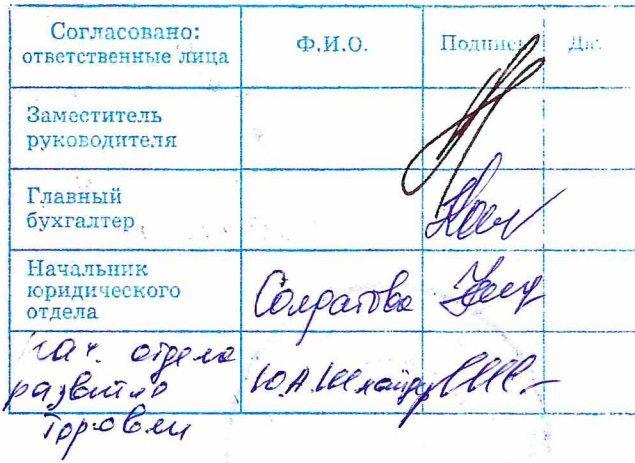 Согласовано:
ответственные лица
Ф.И.О.
Подпись
Заместитель
руководителя
Главный
бухгалтер
Начальник
юридического
отдела
Солдатова
нач. отдела
развития
торговли
Ю.А.